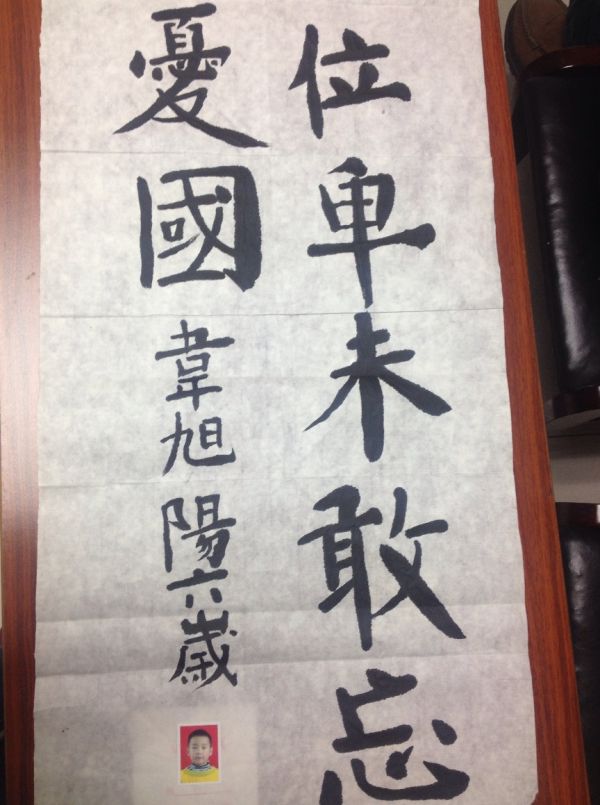 位卑未敢忘
憂國 韋旭陽六歲